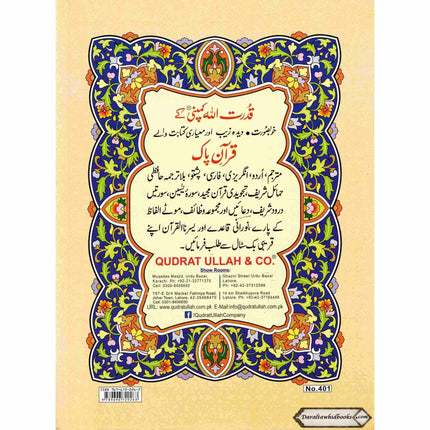 قدرت اللہ کمپنی® کے
خوبصورت • دیدہ زیب اور معیاری کتابت والے
قرآن پاک
مترجم، اُردو، انگریزی، فارسی، پشتو، بلا ترجمہ حافظی
حمائل شریف، تجویدی قرآن مجید، سورۃ یٰسین، سورتیں
درود شریف، دعائیں اور مجموعہ وظائف، موٹے الفاظ
کے پارے، نورانی قاعدے اور یسرنا القرآن اپنے
قریبی بک سٹال سے طلب فرمائیں۔
QUDRAT ULLAH & CO.®
Show Rooms:
Muqadas Masjid, Urdu Bazar,
Karachi. Ph: +92-21-32771375
Cell: 0300-8406650
Ghazni Street Urdu Bazar
Lahore.
Ph: +92-42-37312599
757-E G/4 Market Fatimiya Road,
Johar Town, Lahore. 42-35468470
Cell: 0301-8406650
14 km Sheikhupura Road
Lahore.
Ph: +92-42-37164449
URL: www.qudratullah.com.pk E-Mail:info@qudratullah.com.pk
/QudratUllahCompany
No.401
Daraltawhidbooks.com